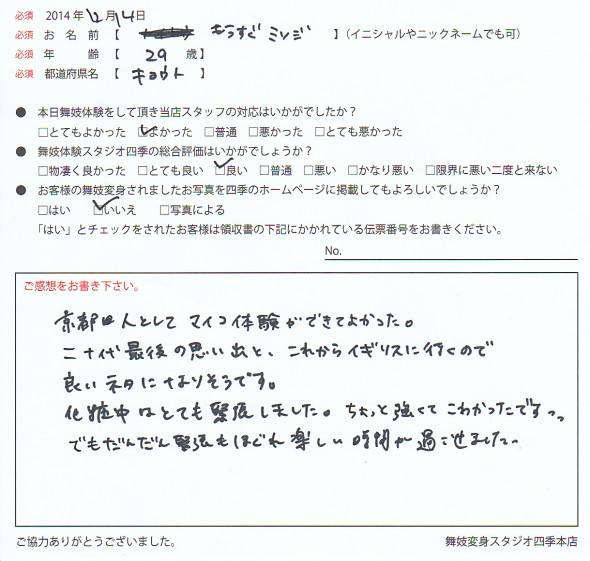 必須 2014年12月14日
必須 お名前【 もうすぐミソジ 】（イニシャルやニックネームでも可）
必須 年齢【 29 歳】
必須 都道府県名【 キョウト 】
● 本日舞妓体験をして頂き当店スタッフの対応はいかがでしたか？
□とてもよかった ☑よかった □普通 □悪かった □とても悪かった
● 舞妓体験スタジオ四季の総合評価はいかがでしょうか？
□物凄く良かった □とても良い ☑良い □普通 □悪い □かなり悪い □限界に悪い二度と来ない
● お客様の舞妓変身されましたお写真を四季のホームページに掲載してもよろしいでしょうか？
□はい ☑いいえ □写真による
「はい」とチェックをされたお客様は領収書の下記にかかれている伝票番号をお書きください。
No.
ご感想をお書き下さい。
京都人としてマイコ体験ができてよかった。
二十代最後の思い出と、これからイギリスに行くので
良いネタになりそうです。
化粧中はとても緊張しました。ちょっと強くてこわかったですっっ
でもだんだん緊張もほぐれ楽しい時間が過ごせました。
ご協力ありがとうございました。
舞妓変身スタジオ四季本店